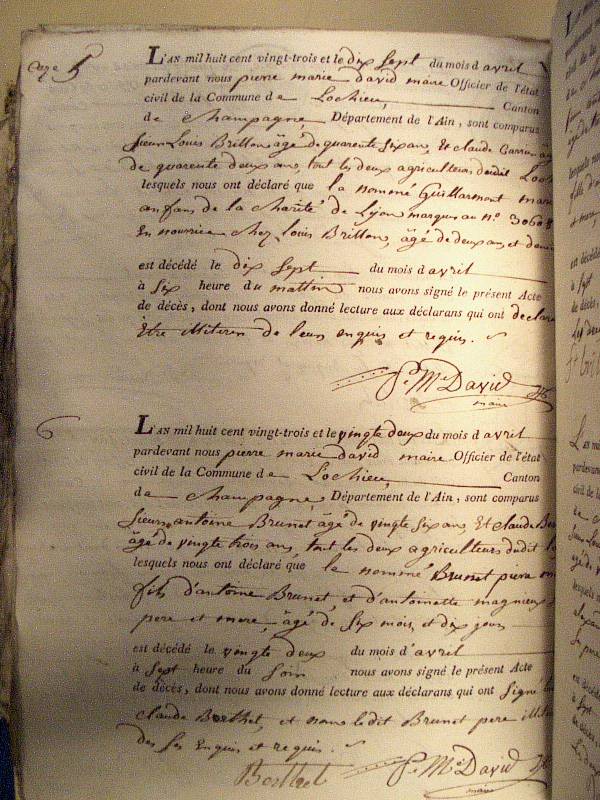 5
L'AN mil huit cent vingt-trois et le dix sept du mois d avril
pardevant nous pierre marie david maire Officier de l'état
civil de la Commune de Lochieu, Canton
de champagne, Département de l'Ain, sont comparus
sieur Louis Brillon âgé de quarente six ans, Et claude
de quarente deux ans, tout les deux agriculteurs dudit
lesquels nous ont déclaré que le nommé Guillarmont
anfans de la charité de Lyon marque au n.º 3060
En nourrice chez Louis Brillon, âgé de deux ans, et
est décédé le dix sept du mois d avril
à six heure du mattin nous avons signé le présent Acte
de décès, dont nous avons donné lecture aux déclarans qui ont
Etre illiteren de leur enquis et requis.
P. M.e David
maire
6
L'AN mil huit cent vingt-trois et le vingte deux du mois d avril
pardevant nous pierre marie david maire Officier de l'état
civil de la Commune de Lochieu, Canton
de champagne, Département de l'Ain, sont comparus
sieurs antoine Brunet âgé de vingte six ans, Et claude
âgé de vingte trois ans, tout les deux agriculteurs dudit
lesquels nous ont déclaré que le nommé Brunet piere
fils d'antoine Brunet, et d'antoinette magnieux
pere et mere, âgé de six mois, et dix jour
est décédé le vingte deux du mois d'avril
à sept heure du soir nous avons signé le présent Acte
de décès, dont nous avons donné lecture aux déclarans qui ont signé
claude Berthet, et nons ledit Brunet pere
des ses Enquis, et requis.
Berthet
P. M.e David
maire